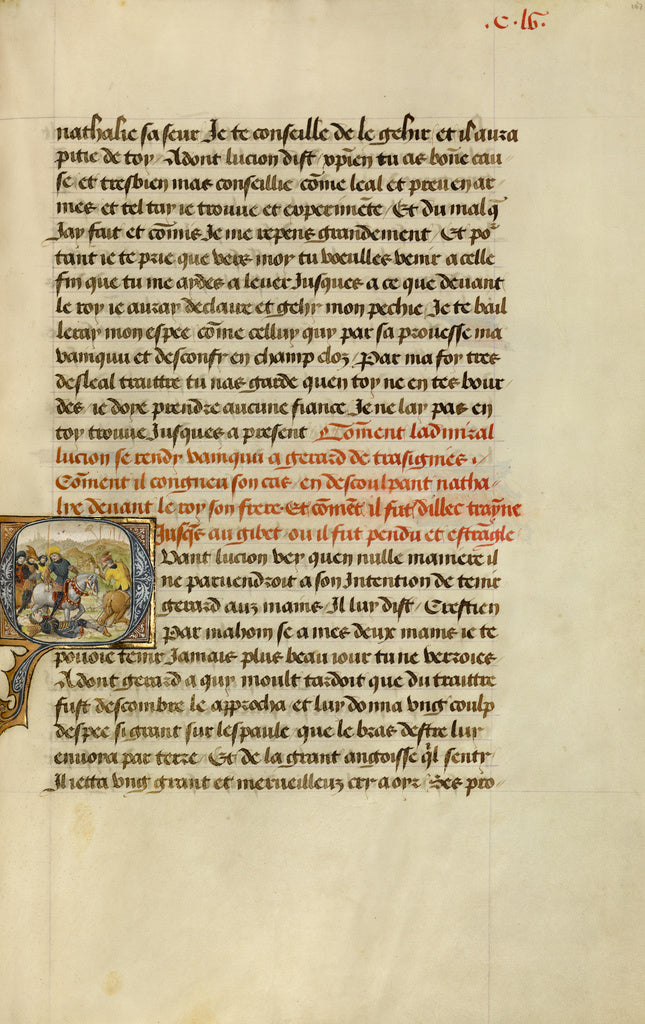 .C.lv.
nathalie sa seur Je te conseille de le gehir et il aura
pitie de toy / Adont lucion dist / xpien tu as bone cau /
se et tresbien mas conseillie come leal et preu en ar
mes et tel tay ie trouve et experimete / Et du mal q̃
Jay fait et comis Je me repens grandement / Et po²
tant ie te prie que vers moy tu voeulles venir a celle
fin que tu me aydes a lever Jusques a ce que devant
le roy ie auray declaire et gehy mon pechie Je te bail
leray mon espee cõme celluy quy par sa prouesse ma
vaincu et desconfy en champ cloz / Par ma foy tres
desleal traittre tu nas garde quen toy ne en tes bour /
des ie doye prendre aucune fiance Je ne lay pas en
toy trouve Jusques a present Cõment ladmiral
lucion se rendy vaincu a gerard de trasignies .
Cõment il congneu son cas en descoulpant natha /
lye devant le roy son frere Et cõmet il fut dillec trayne
Jusq̃s au gibet ou il fut pendu et estrãgle
Quant lucion vey quen nulle maniere il
ne parvendroit a son Intention de tenir
gerard aux mains / Il luy dist / Crestien
Par mahom se a mes deux mains ie te
povoie tenir Jamais plus beau iour tu ne verroies
Adont gerard a quy moult tardoit que du traittre
fust descombre le approcha et luy donna ung coulp
despee si grant sur lespaule que le bras destre luy
envoya par terre / Et de la grant angoisse q̃l senty
Il ietta ung grant et merveilleux cry a oyr / Ses pro /